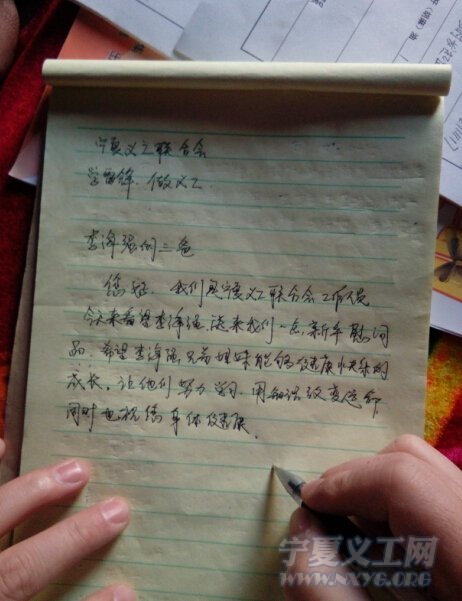 宁夏义工联合会
学雷锋.做义工.
李泽强的二爸
您好.我们是宁夏义工联合会工作人员
今天来看望李泽强,送来我们一点新年慰问
品.希望李泽强兄弟姐妹能够健康快乐的
成长.让他们努力学习.用知识改变命运
同时也祝您身体健康.
宁夏义工网
WWW.NXYG.ORG